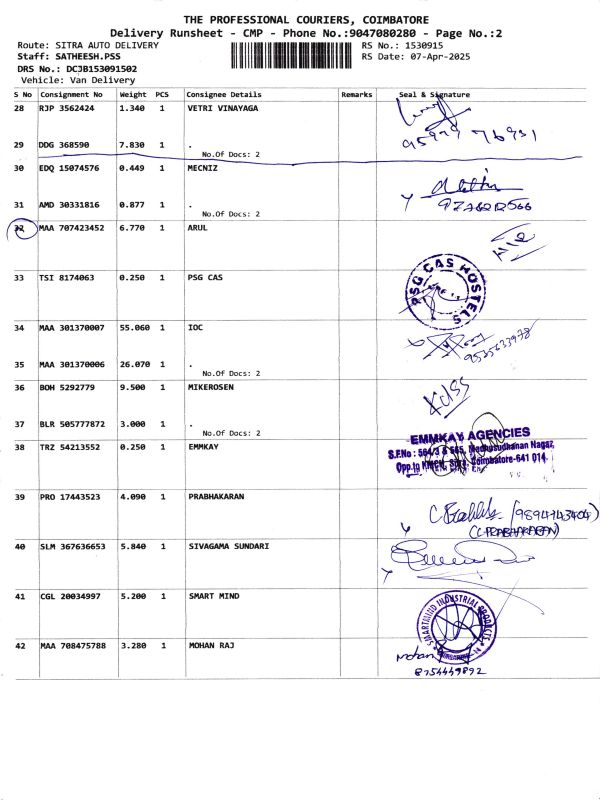 THE PROFESSIONAL COURIERS, COIMBATORE
Delivery Runsheet - CMP - Phone No.:9047080280 - Page No.:2
Route: SITRA AUTO DELIVERY RS No.: 1530915
Staff: SATHEESH.PSS RS Date: 07-Apr-2025
DRS No.: DCJB153091502
Vehicle: Van Delivery
S No Consignment No Weight PCS Consignee Details Remarks Seal & Signature
28 RJP 3562424 1.340 1 VETRI VINAYAGA
29 DDG 368590 7.830 1 .
No.Of Docs: 2
30 EDQ 15074576 0.449 1 MECNIZ
31 AMD 30331816 0.877 1 .
No.Of Docs: 2
32 MAA 707423452 6.770 1 ARUL
33 TSI 8174063 0.250 1 PSG CAS
PSG CAS HOSTELS
34 MAA 301370007 55.060 1 IOC
9535633978
35 MAA 301370006 26.070 1 .
No.Of Docs: 2
36 BOH 5292779 9.500 1 MIKEROSEN
37 BLR 505777872 3.000 1 .
No.Of Docs: 2
38 TRZ 54213552 0.250 1 EMMKAY
EMMKAY AGENCIES
S.F.No : 564/3 & 565, Madhusudhanan Nagar,
Opp.to KMCH, Sitra, Coimbatore-641 014.
39 PRO 17443523 4.090 1 PRABHAKARAN
(9894743404)
(C.PRABHAKARAN)
40 SLM 367636653 5.840 1 SIVAGAMA SUNDARI
41 CGL 20034997 5.200 1 SMART MIND
SMARTMIND INDUSTRIAL PRODUCTS
42 MAA 708475788 3.280 1 MOHAN RAJ
Mohan
8754449892